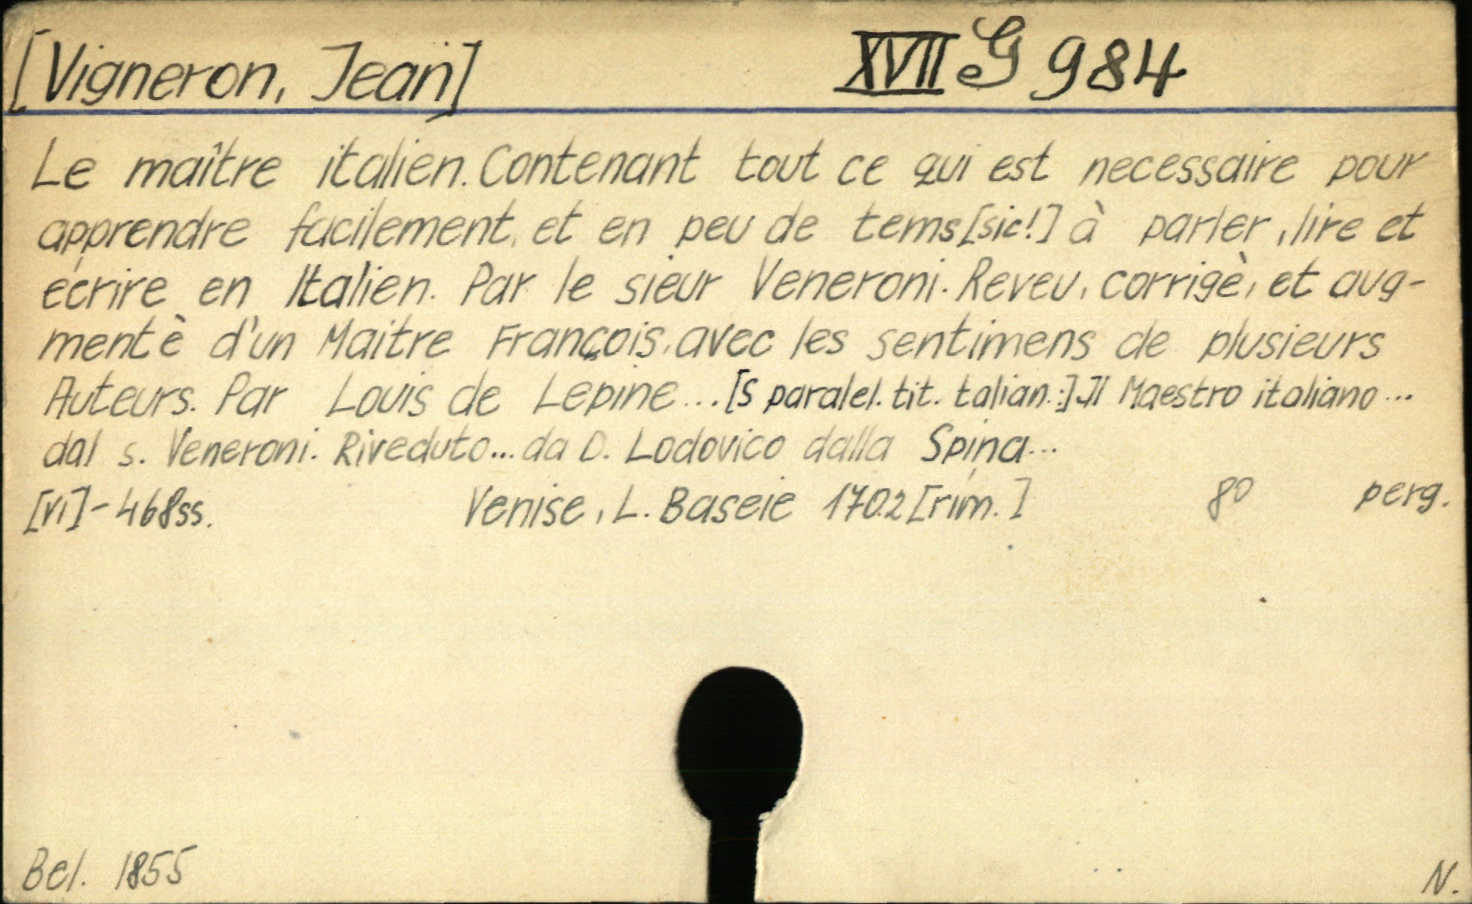 [Vigneron, Jean] XVII G 984
Le maître italien. Contenant tout ce qui est necessaire pour
apprendre facilement, et en peu de tems [sic!] à parler, lire et
écrire en Italien. Par le sieur Veneroni. Reveu, corrigè, et aug-
mentè d'un Maitre François, avec les sentimens de plusieurs
Auteurs. Par Louis de Lepine... [S paralel. tit. talian.:] Il Maestro italiano...
dal s. Veneroni. Riveduto... da D. Lodovico dalla Spina...
[VI]-468ss. Venise, L. Baseie 1702 [rim.] 8º perg.
Bel. 1855 N.